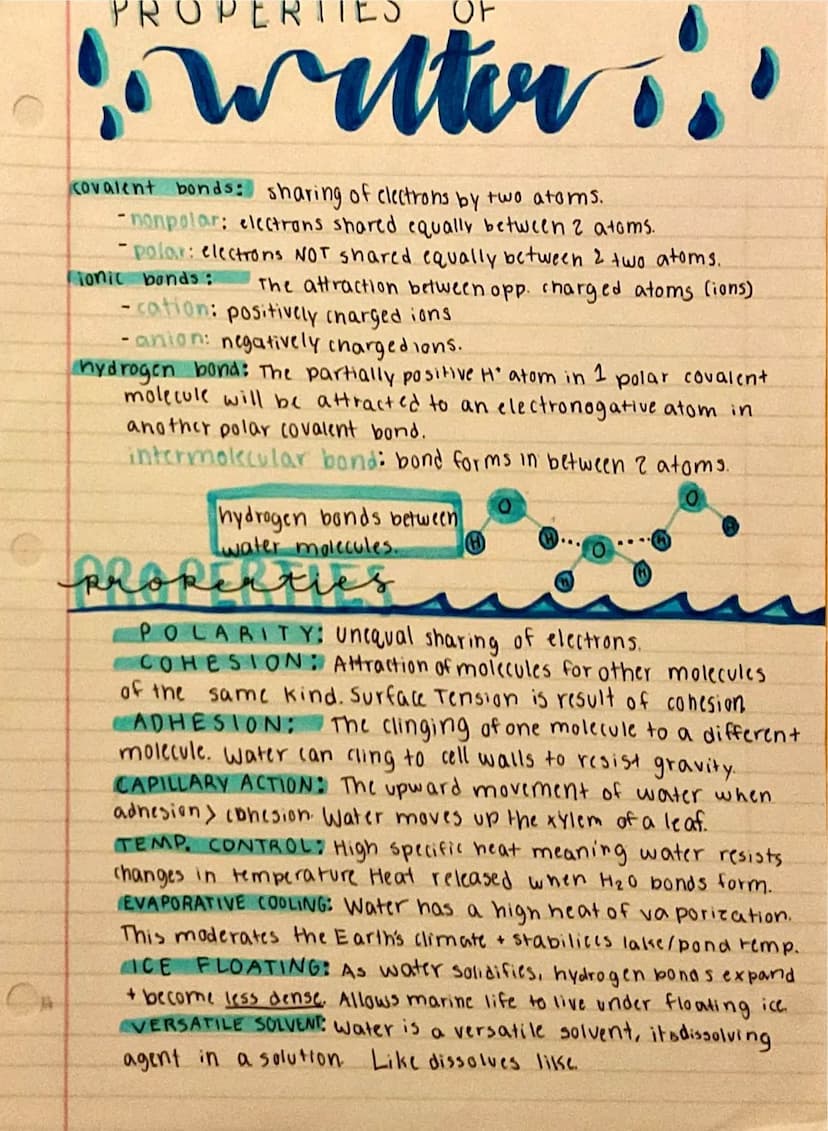 PROPERTIES OF
water
covalent bonds: sharing of electrons by two atoms.
- nonpolar: electrons shared equally between 2 atoms.
- polar: electrons NOT shared equally between 2 two atoms.
ionic bonds: The attraction between opp. charged atoms (ions)
- cation: positively charged ions
- anion: negatively charged ions.
hydrogen bond: The partially positive H⁺ atom in 1 polar covalent
molecule will be attracted to an electronogative atom in
another polar covalent bond.
intermolecular bond: bond forms in between 2 atoms.
hydrogen bonds between
water molecules.
O O
H H O H H
H H
PROPERTIES
properties
POLARITY: Unequal sharing of electrons.
COHESION: Attraction of molecules for other molecules
of the same kind. Surface Tension is result of cohesion
ADHESION: The clinging of one molecule to a different
molecule. Water can cling to cell walls to resist gravity.
CAPILLARY ACTION: The upward movement of water when
adhesion > cohesion. Water moves up the xylem of a leaf.
TEMP. CONTROL: High specific heat meaning water resists
changes in temperature Heat released when H₂O bonds form.
EVAPORATIVE COOLING: Water has a high heat of vaporization.
This moderates the Earth's climate + stabilices lake/pond temp.
ICE FLOATING: As water solidifies, hydrogen bonds expand
+ become less dense. Allows marine life to live under floating ice.
VERSATILE SOLVENT: Water is a versatile solvent, its dissolving
agent in a solution. Like dissolves like.